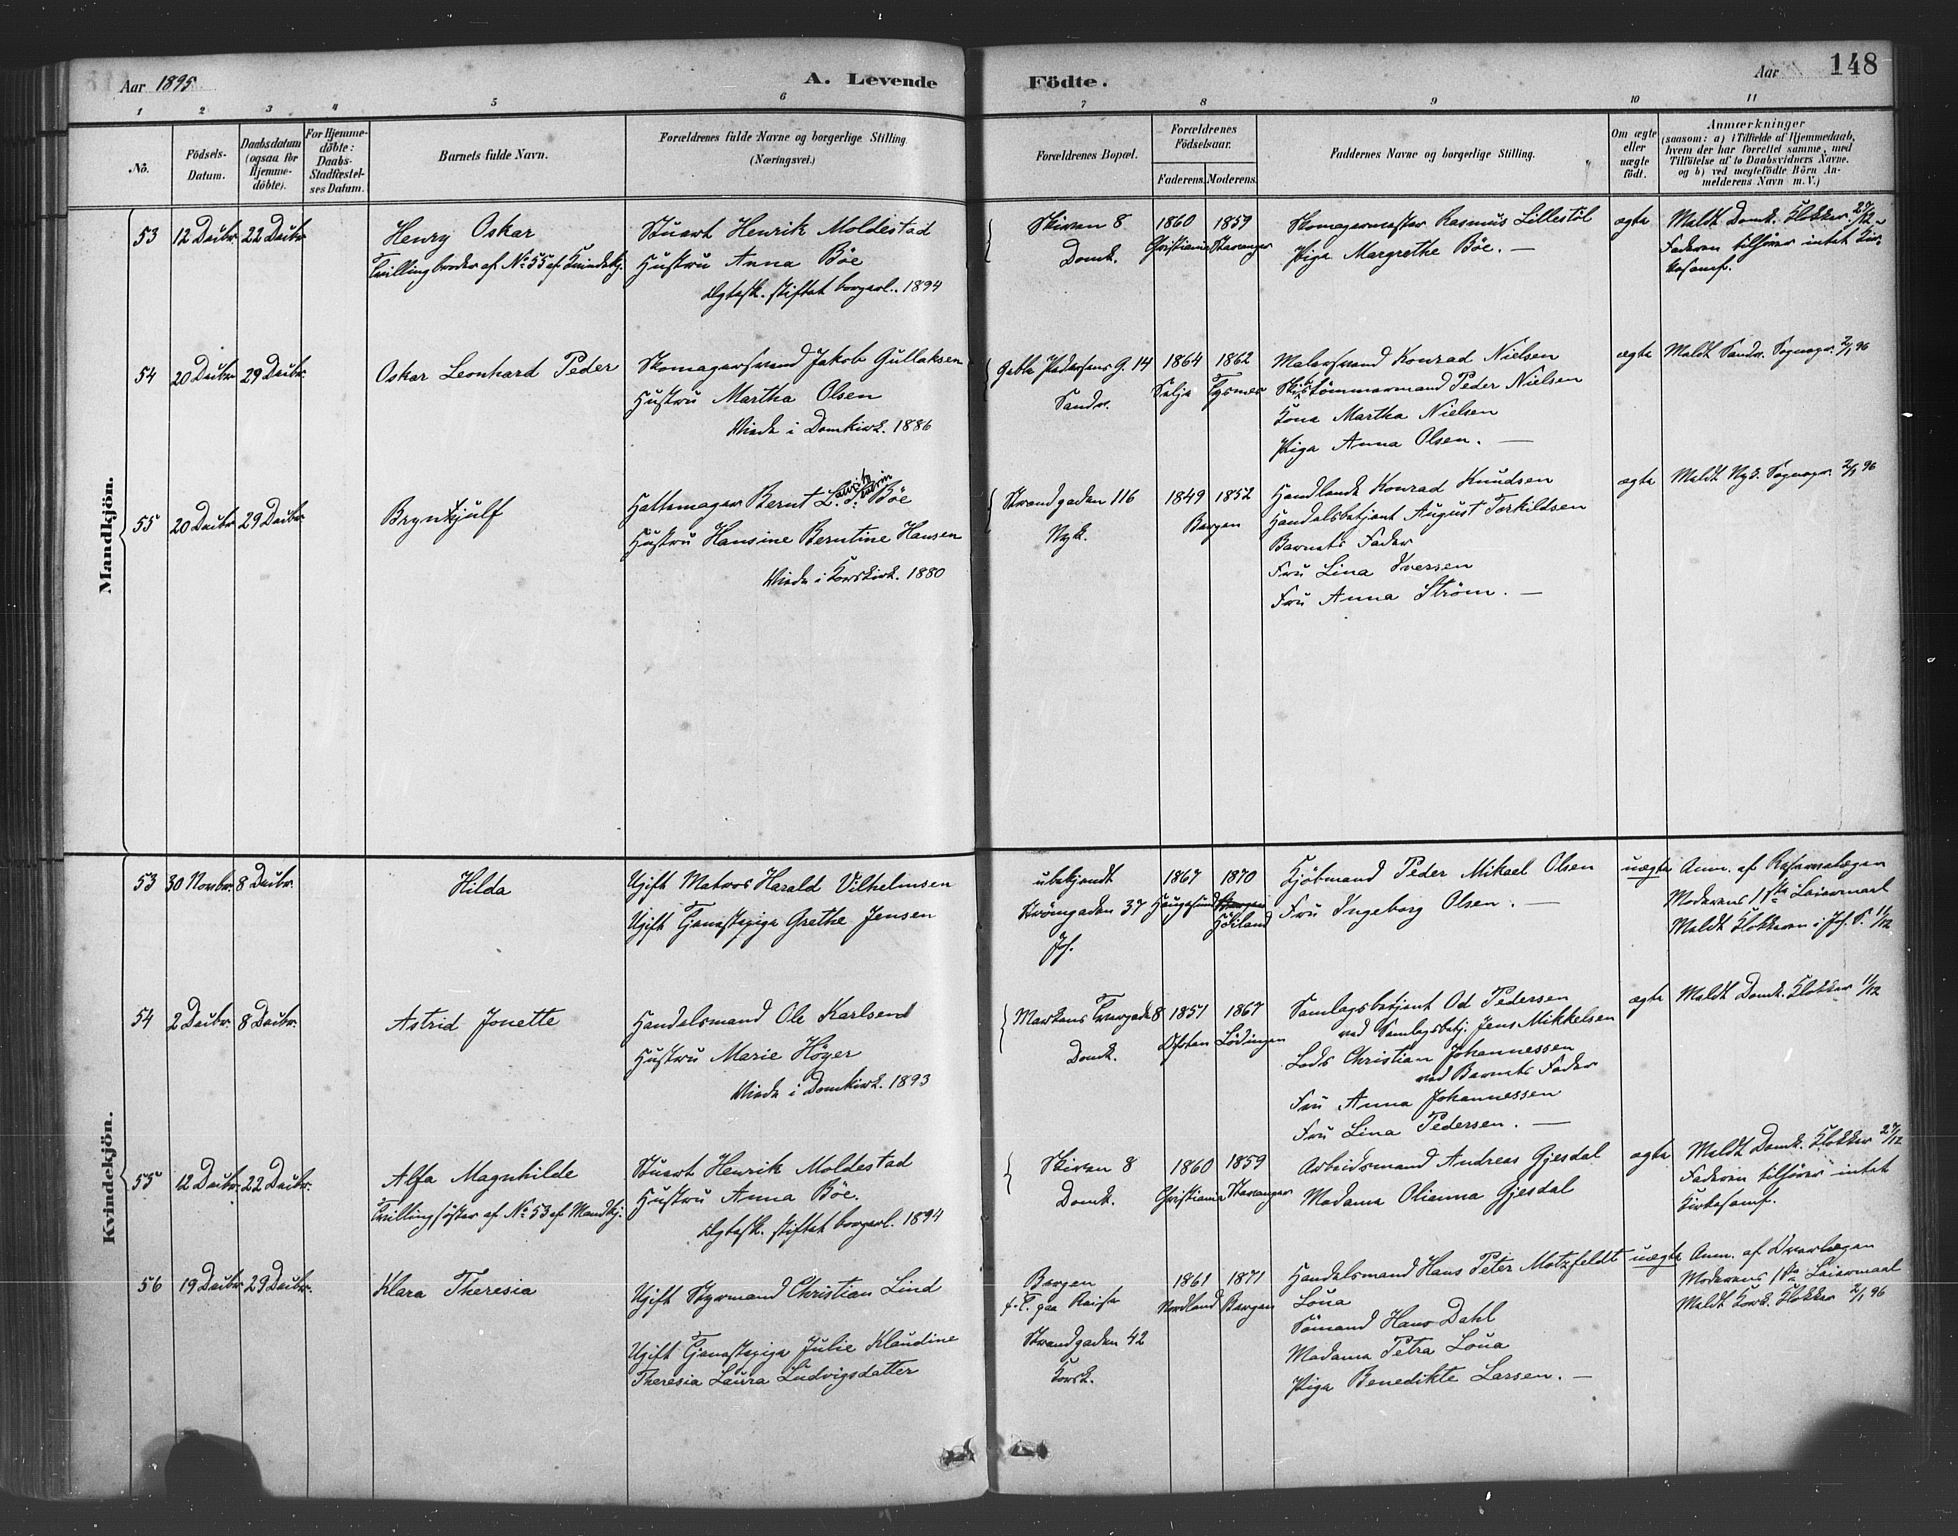 Aar 1895
A. Levende
Födte.
Aar
148
1 2 3 4 5 6 7 8 9 10 11
No.
Födsels-Datum.
Daabsdatum (ogsaa for Hjemmedöbte).
For Hjemmedöbte: Daabs-Stadfæstelses Datum.
Barnets fulde Navn.
Forældrenes fulde Navne og borgerlige Stilling.
(Næringsvei.)
Forældrenes Bopæl.
Forældrenes Födselsaar.
Faderens. Moderens.
Faddernes Navne og borgerlige Stilling.
Om ægte eller uægte födt.
Anmærkninger
(saasom: a) i Tilfælde af Hjemmedaab, hvem der har forrettet samme, med Tilföielse af to Daabsvidners Navne. og b) ved uægtefödte Börn Anmelderens Navn m. V.)
Mandkjön.
53 12 Decbr. 22 Decbr.
Henry Oskar
Tvillingbroder af No 55 af Kvindekj.
Stuert Henrik Moldestad
Hustru Anna Böe
Ægtesk. stiftet borgerl. 1894
Skiven 8
Domk.
1860 1859
Christiania Stavanger
Skomagermester Rasmus Lillestöl
Pige Margrethe Böe. —
ægte
Meldt Domk. Klokker. 27/12
Faderen tilhörer intet Kirkesamf.
54 20 Decbr. 29 Decbr.
Oskar Leonhard Peder
Skomagersvend Jakob Gullaksen
Hustru Martha Olsen
Viede i Domkirk. 1886
Gabla Pedersens G. 14
Sandv.
1864 1862
Selje Tysnes
Malersvend Konrad Nielsen
Skibstömmermand Peder Nielsen
Kone Martha Nielsen
Pige Anna Olsen. —
ægte
Meldt Sandv. Sognepr. 2/1 96
55 20 Decbr. 29 Decbr.
Brynkjulf
Hattemager Bernt L. Böe
Hustru Hansine Berntine Hansen
Viede i Korskirk. 1880
Strandgaden 116
Nyk.
1849 1852
Bergen
Handlende Konrad Knudsen
Handelsbetjent August Torkildsen
Barnets Fader
Fru Lina Iversen
Fru Anna Ström. —
ægte
Meldt Nyk. Sognepr. 2/1 96
Kvindekjön.
53 30 Novbr. 8 Decbr.
Hilda
Ugift Matros Harald Vilhelmsen
Ugift Tjenestepige Grethe Jensen
ubekjendt
Strömgaden 37
Joh.
1867 1870
Haugesund Bergen
Söknemand Peder Mikael Olsen
Fru Ingeborg Olsen. —
uægte
Moderens 1ste Leiermaal
Meldt Klokkeren i Joh. K. 11/12
54 2 Decbr. 8 Decbr.
Astrid Jonette
Handelsmand Ole Karlsen
Hustru Marie Höyer
Viede i Domkirk. 1893
8
Domk.
1851 1867
Ofoten Lödingen
Samlagsbetjent Od Pedersen
ved Samlagsbetj. Jens Mikkelsen
Lods Christian Johannessen
ved Barnets Fader
Fru Anna Johannessen
Fru Lina Pedersen. —
ægte
Meldt Domk. Klokker 11/12
55 12 Decbr. 22 Decbr.
Alfa Magnhilde
Tvillingsöster af No 53 af Mandkj.
Stuert Henrik Moldestad
Hustru Anna Böe.
Ægtesk. stiftet borgerl. 1894
Skiven 8
Domk.
1860 1859
Christiania Stavanger
Arbeidsmand Andreas Gjesdal
Madame Olianna Gjesdal
ægte
Meldt Domk. Klokker 27/12
Faderen tilhörer intet
Kirkesamf.
56 19 Decbr. 29 Decbr.
Klara Theresia
Ugift Styrmand Christian Lind
Ugift Tjenestepige Julie Klaudine
Theresia Laura Ludvigsdatter
Bergen
f. T. paa Reise
Strandgaden 42
Korsk.
1861 1871
Nordland Bergen
Handelsmand Hans Peter Motzfeldt
Loua
Sömand Hans Dahl
Madame Petra Loua
Pige Benedikte Larsen. —
uægte
Anm. af Overlægen
Moderens 1ste Leiermaal
Meldt Korsk. Klokker 2/1 96